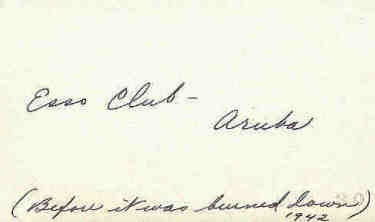 Esso Club -
Aruba
(Before it was burned down)
1942